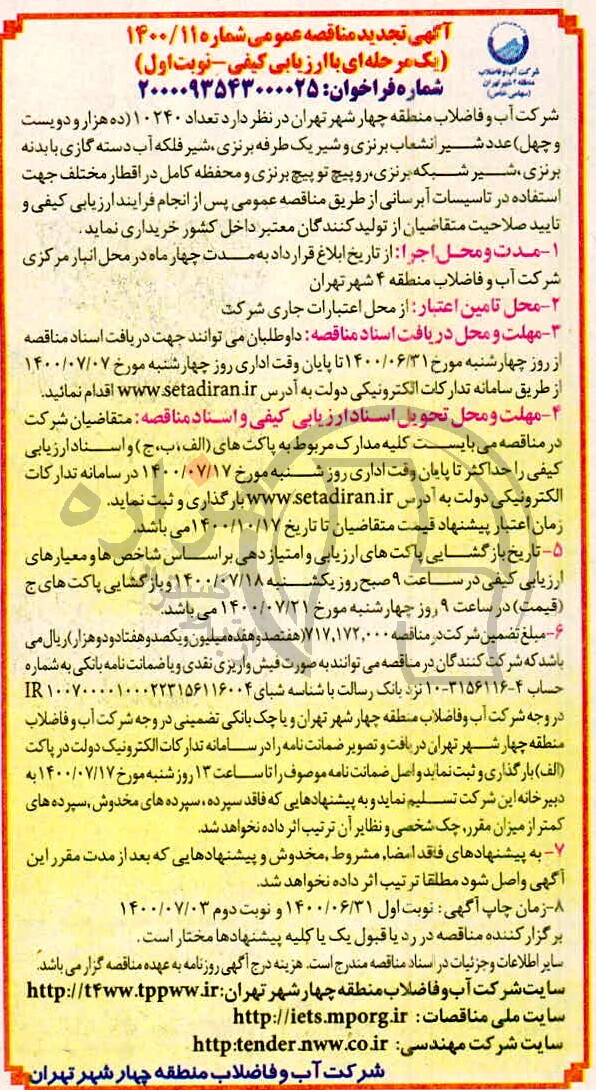 شرکت آب و فاضلاب
منطقه ۴ شهر تهران
(سهامی خاص)
آگهی تجدید مناقصه عمومی شماره ۱۴۰۰/۱۱
(یک مرحله ای با ارزیابی کیفی - نوبت اول)
شماره فراخوان: ۲۰۰۰۰۹۳۵۴۳۰۰۰۰۲۵
شرکت آب و فاضلاب منطقه چهار شهر تهران در نظر دارد تعداد ۱۰۲۴۰ (ده هزار و دویست
و چهل) عدد شیر انشعاب برنزی و شیر یک طرفه برنزی، شیر فلکه آب دسته گازی با بدنه
برنزی، شیر شبکه برنزی، روپیچ توپیچ برنزی و محفظه کامل در اقطار مختلف جهت
استفاده در تاسیسات آبرسانی از طریق مناقصه عمومی پس از انجام فرایند ارزیابی کیفی و
تایید صلاحیت متقاضیان از تولیدکنندگان معتبر داخل کشور خریداری نماید.
۱-مدت و محل اجرا: از تاریخ ابلاغ قرارداد به مدت چهار ماه در محل انبار مرکزی
شرکت آب و فاضلاب منطقه ۴ شهر تهران
۲-محل تامین اعتبار: از محل اعتبارات جاری شرکت
۳-مهلت و محل دریافت اسناد مناقصه: داوطلبان می توانند جهت دریافت اسناد مناقصه
از روز چهارشنبه مورخ ۱۴۰۰/۰۶/۳۱ تا پایان وقت اداری روز چهارشنبه مورخ ۱۴۰۰/۰۷/۰۷
از طریق سامانه تدارکات الکترونیکی دولت به آدرس www.setadiran.ir اقدام نمائید.
۴-مهلت و محل تحویل اسناد ارزیابی کیفی و اسناد مناقصه: متقاضیان شرکت
در مناقصه می بایست کلیه مدارک مربوط به پاکت های (الف،ب،ج) و اسناد ارزیابی
کیفی را حداکثر تا پایان وقت اداری روز شنبه مورخ ۱۴۰۰/۰۷/۱۷ در سامانه تدارکات
الکترونیکی دولت به آدرس www.setadiran.ir بارگذاری و ثبت نماید.
زمان اعتبار پیشنهاد قیمت متقاضیان تا تاریخ ۱۴۰۰/۱۰/۱۷ می باشد.
۵-تاریخ بازگشایی پاکت های ارزیابی و امتیاز دهی بر اساس شاخص ها و معیارهای
ارزیابی کیفی در ساعت ۹ صبح روز یکشنبه ۱۴۰۰/۰۷/۱۸ و بازگشایی پاکت های ج
(قیمت) در ساعت ۹ روز چهارشنبه مورخ ۱۴۰۰/۰۷/۲۱ می باشد.
۶-مبلغ تضمین شرکت در مناقصه ۷۱۷,۱۷۲,۰۰۰ (هفتصد و هفده میلیون و یکصد و هفتاد و دو هزار) ریال می
باشد که شرکت کنندگان در مناقصه می توانند به صورت فیش واریزی نقدی و یا ضمانت نامه بانکی به شماره
حساب ۴-۳۱۵۶۱۱۶-۱۰ نزد بانک رسالت با شناسه شبای IR ۱۰۰۷۰۰۰۰۱۰۰۰۲۲۳۱۵۶۱۱۶۰۰۴
در وجه شرکت آب و فاضلاب منطقه چهار شهر تهران و یا چک بانکی تضمینی در وجه شرکت آب و فاضلاب
منطقه چهار شهر تهران دریافت و تصویر ضمانت نامه را در سامانه تدارکات الکترونیک دولت در پاکت
(الف) بارگذاری و ثبت نماید و اصل ضمانت نامه موصوف را تا ساعت ۱۳ روز شنبه مورخ ۱۴۰۰/۰۷/۱۷ به
دبیرخانه این شرکت تسلیم نماید و به پیشنهادهایی که فاقد سپرده، سپرده های مخدوش، سپرده های
کمتر از میزان مقرر، چک شخصی و نظایر آن ترتیب اثر داده نخواهد شد.
۷- به پیشنهادهای فاقد امضا، مشروط، مخدوش و پیشنهادهایی که بعد از مدت مقرر این
آگهی واصل شود مطلقا ترتیب اثر داده نخواهد شد.
۸-زمان چاپ آگهی: نوبت اول ۱۴۰۰/۰۶/۳۱ و نوبت دوم ۱۴۰۰/۰۷/۰۳
برگزار کننده مناقصه در رد یا قبول یک یا کلیه پیشنهادها مختار است.
سایر اطلاعات و جزئیات در اسناد مناقصه مندرج است. هزینه درج آگهی روزنامه به عهده مناقصه گزار می باشد.
سایت شرکت آب و فاضلاب منطقه چهار شهر تهران: http://t4ww.tppww.ir
سایت ملی مناقصات: http://iets.mporg.ir
سایت شرکت مهندسی: http:tender.nww.co.ir
شرکت آب و فاضلاب منطقه چهار شهر تهران